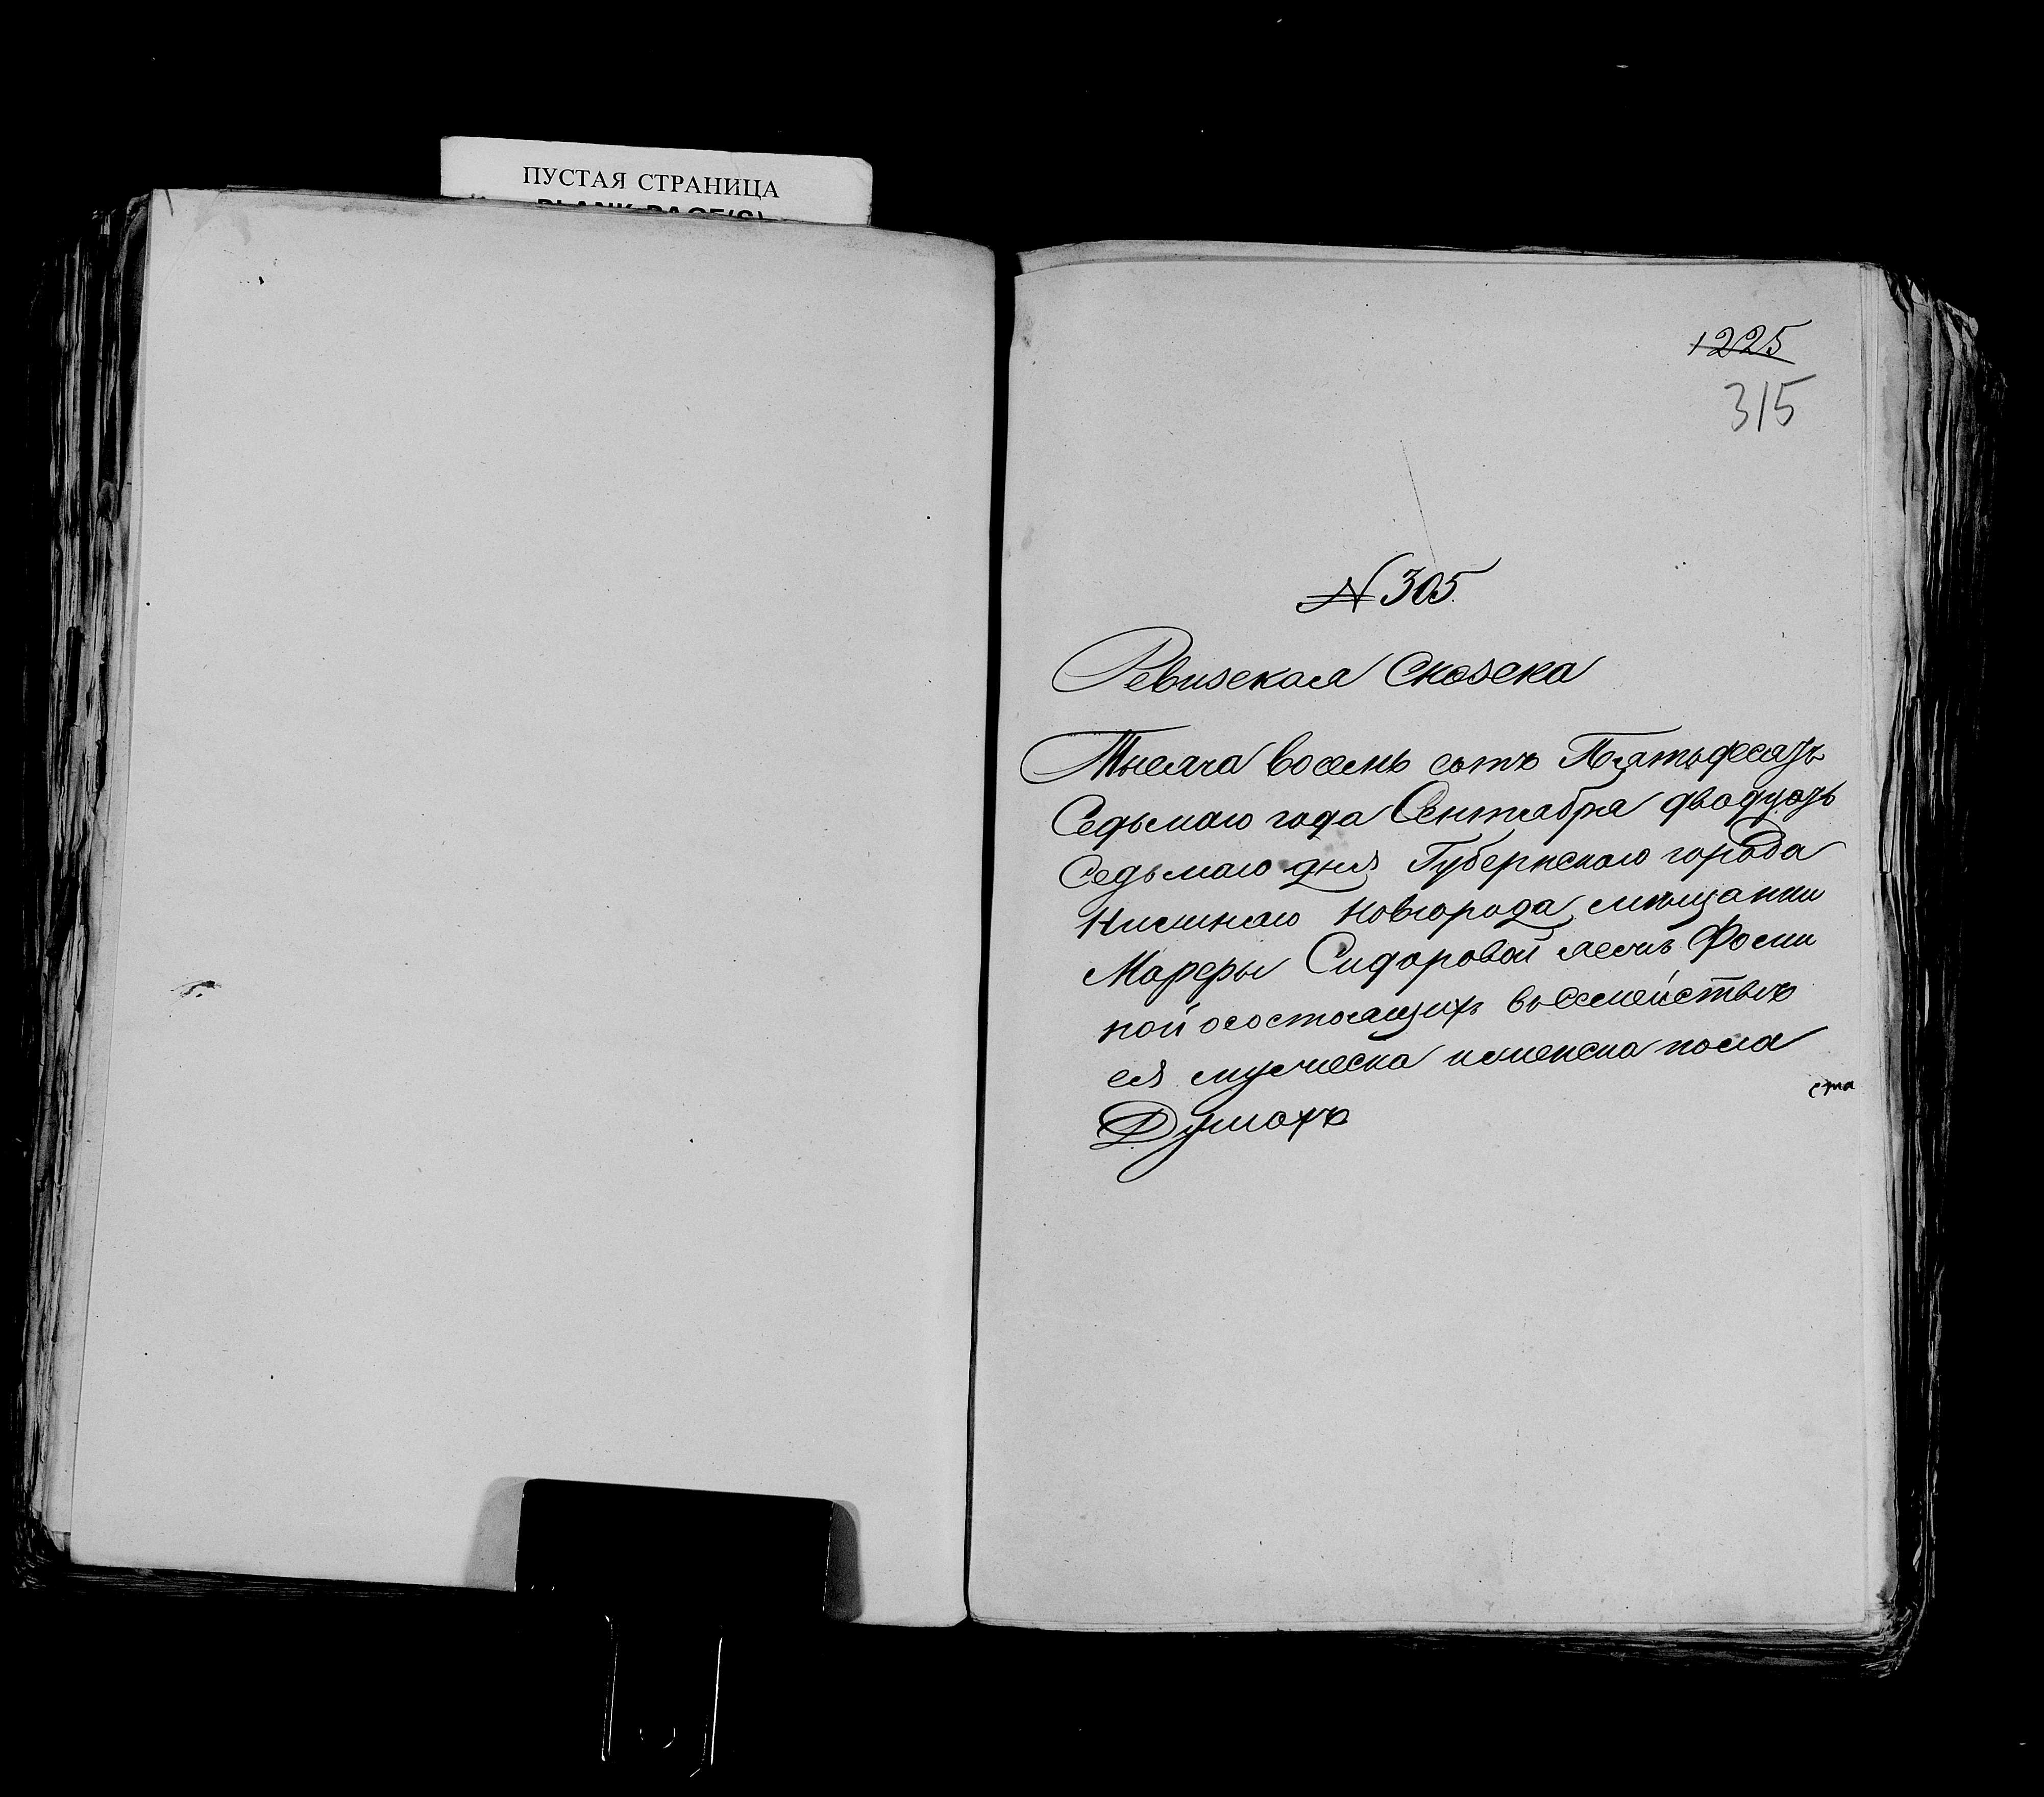 ПУСТАЯ СТРАНИЦА
BLANK PAGE(S)
1225
315
№ 305.
Ревизская Сказска
Тысяча восемь сотъ Пятьдесятъ
Седьмаго года Сентября двадцать
Седьмаго дня Губернскаго города
Нижнаго Новгорода мѣщанки
Марфы Сидоровой
ной осостоящихъ въ Семействѣ
ея мужеска иженска пола
ста
Душахъ